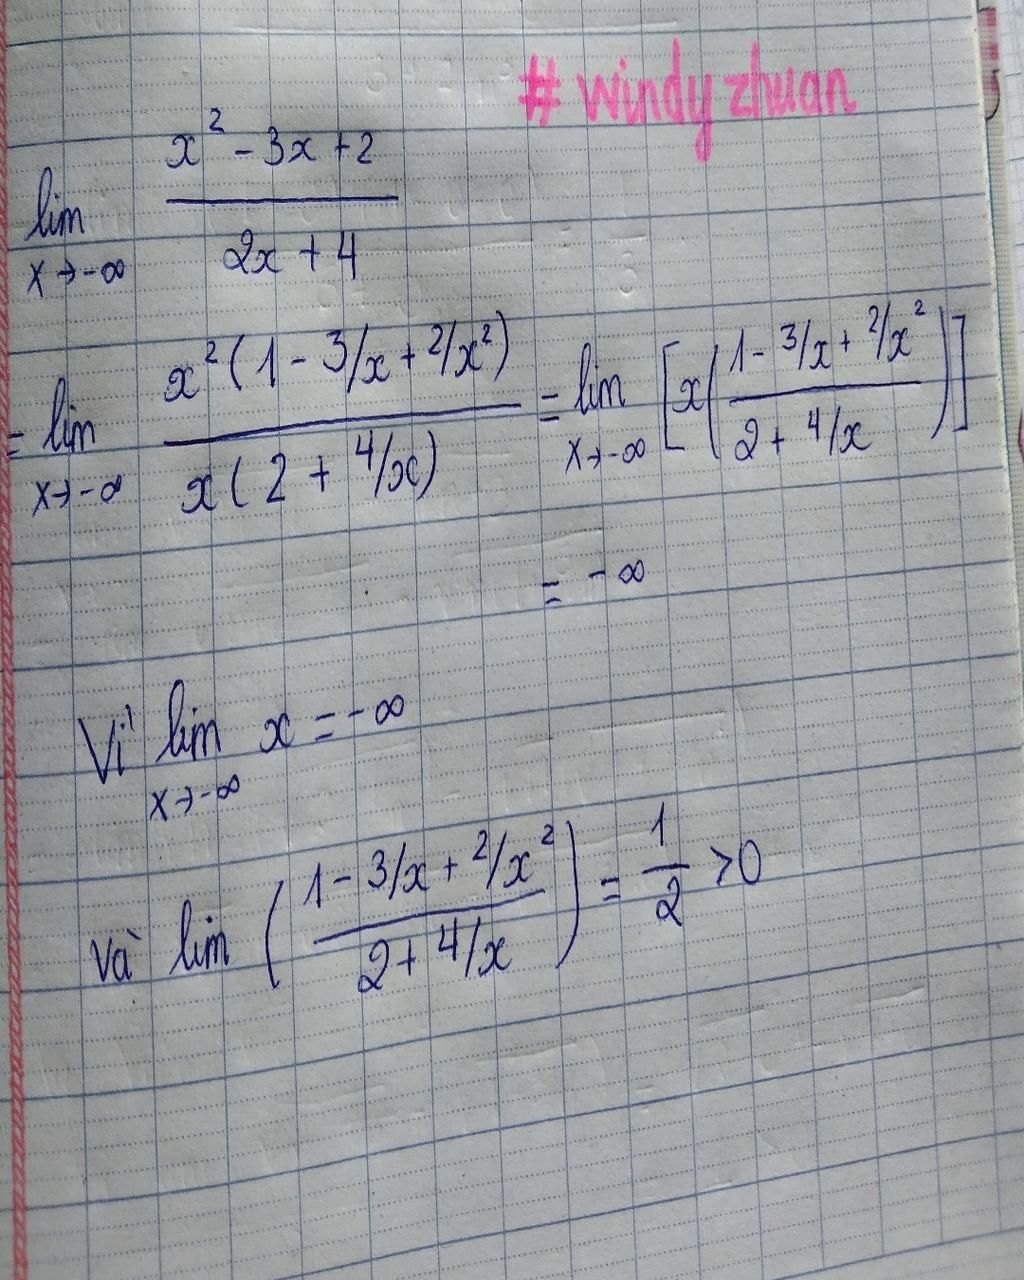 # windy zhuan
lim x→-∞ (x² - 3x + 2)/(2x + 4)
= lim x→-∞ x²(1 - 3/x + 2/x²)/x(2 + 4/x) = lim x→-∞ [x((1 - 3/x + 2/x²)/(2 + 4/x))]
= -∞
Vì lim x→-∞ x = -∞
và lim ((1 - 3/x + 2/x²)/(2 + 4/x)) = 1/2 >0